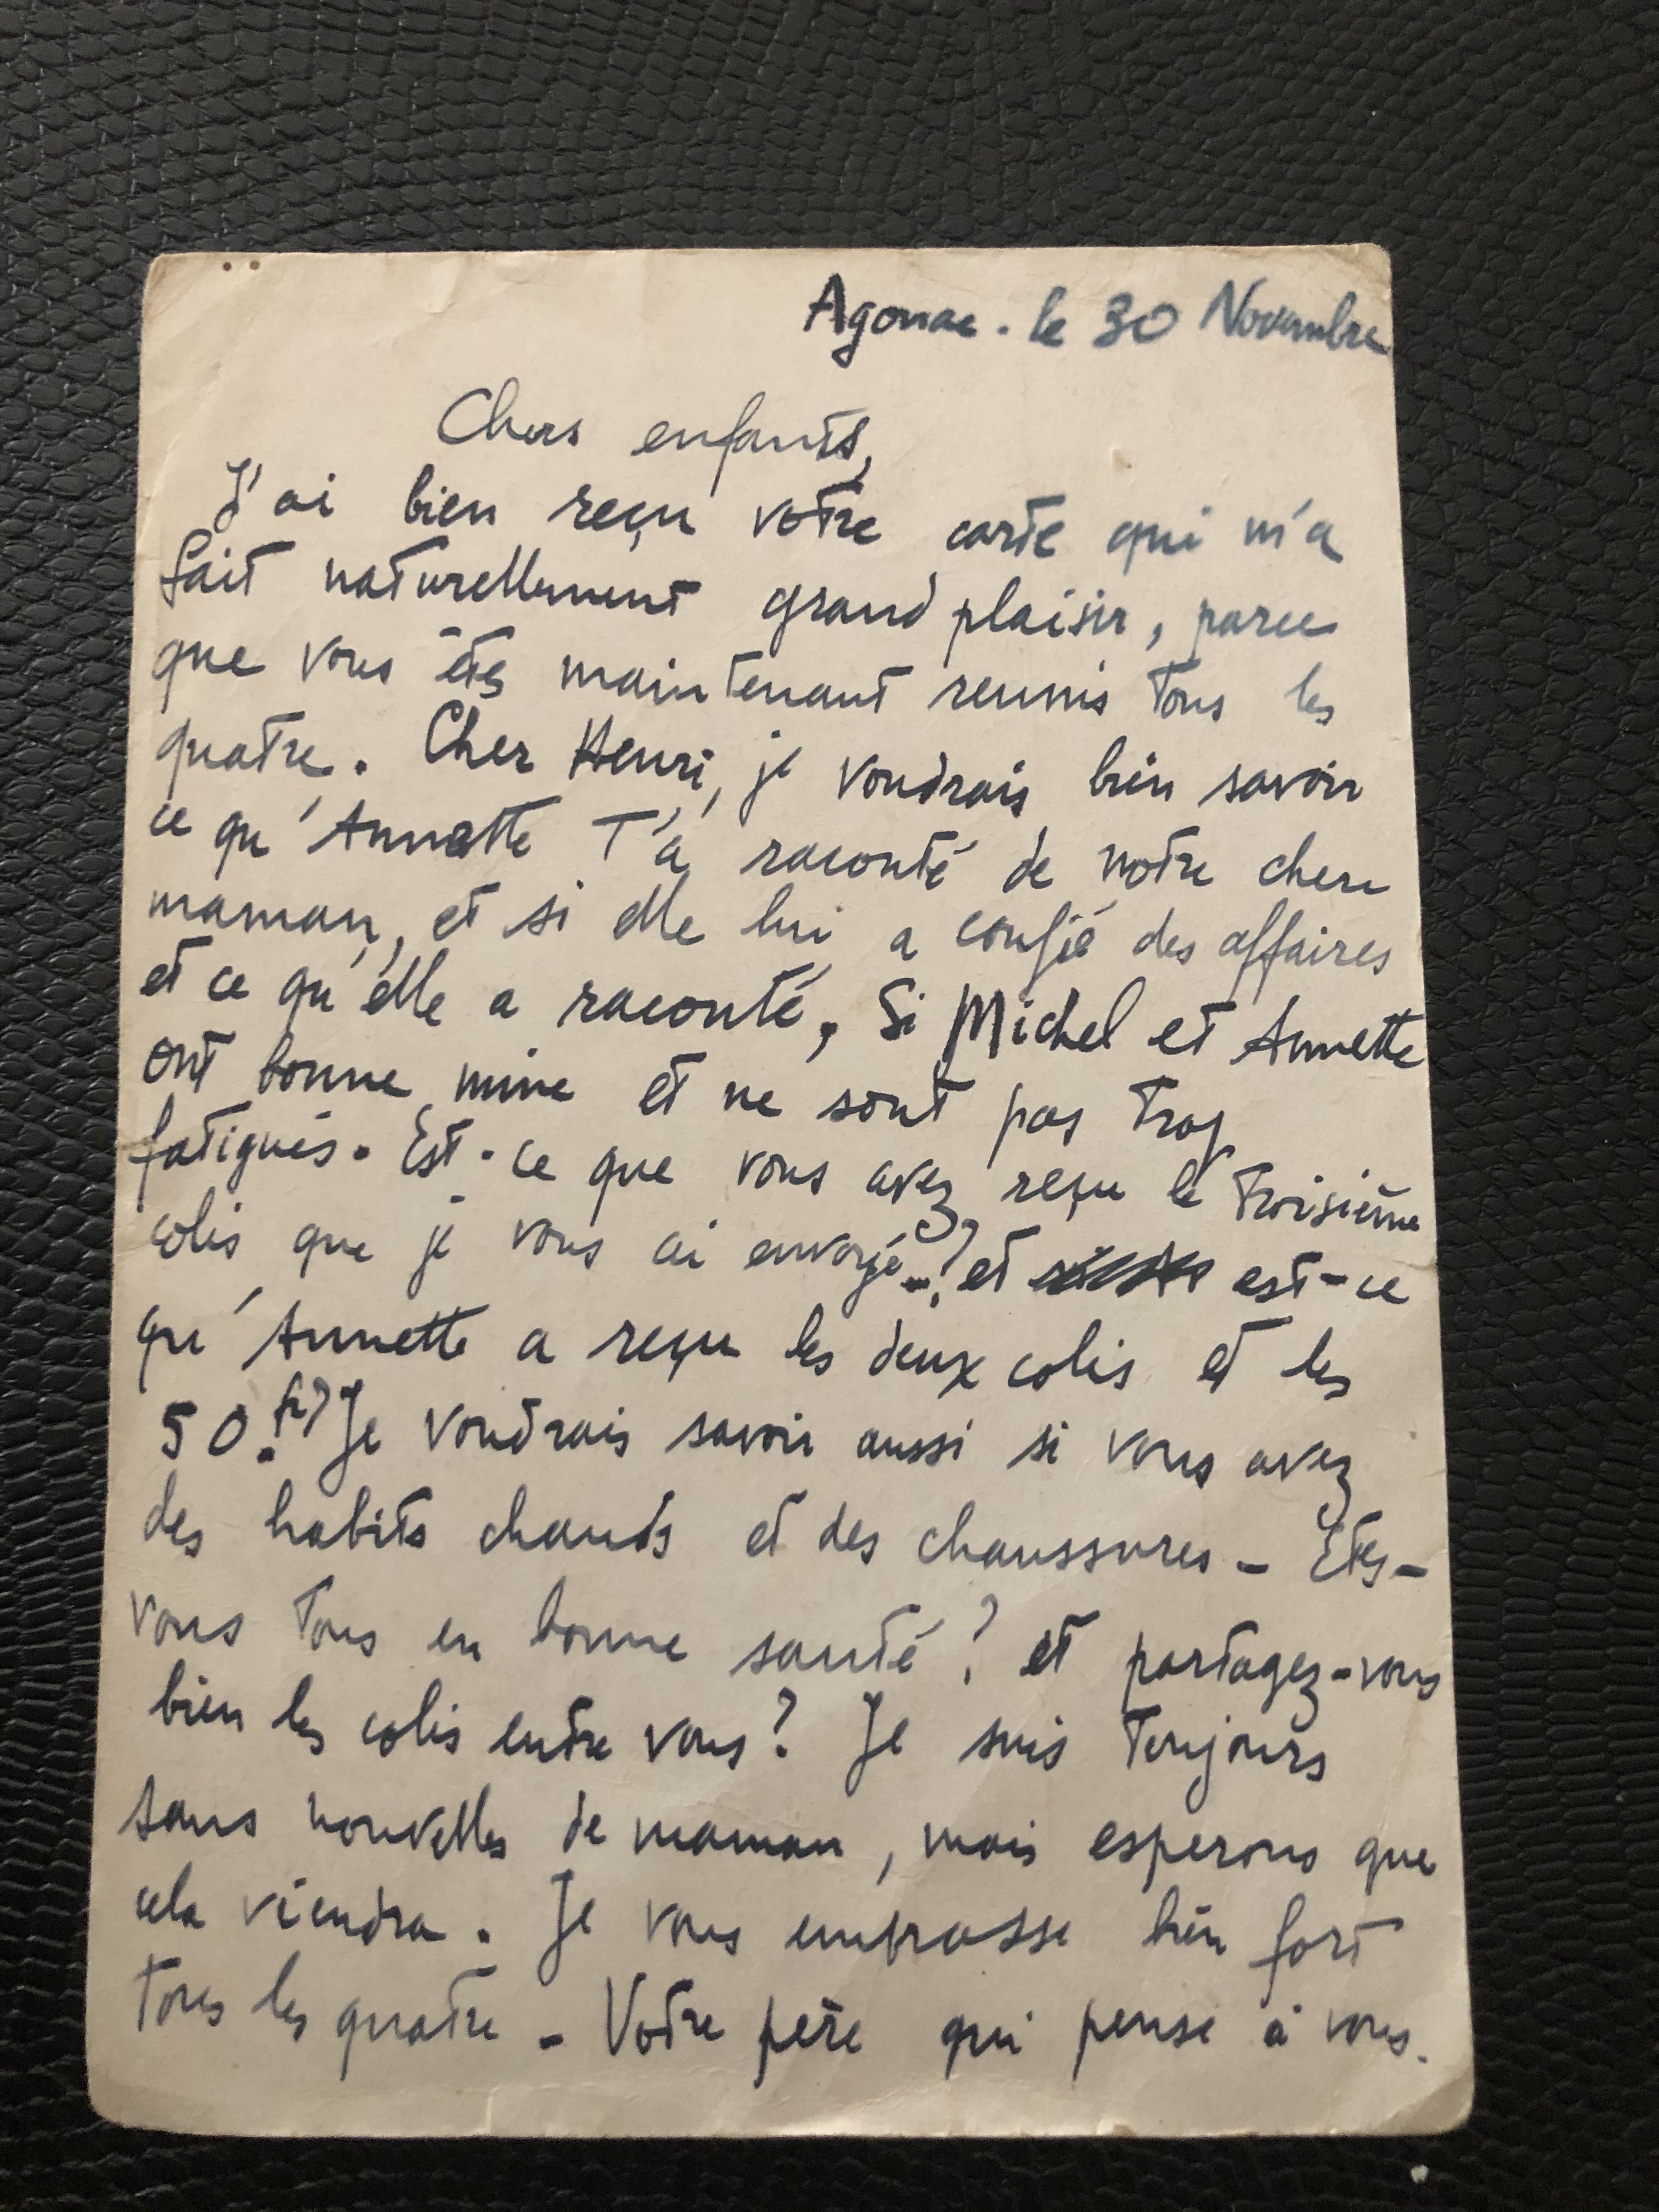 Agonac . le 30 Novembre
Chers enfants,
J'ai bien reçu votre carte qui m'a
fait naturellement grand plaisir, parce
que vous êtes maintenant reunis tous les
quatre. Cher Henri, je voudrais bien savoir
ce qu'Annette t'a raconté de notre chere
maman, et si elle lui a confié des affaires
et ce qu'elle a raconté, Si Michel et Annette
ont bonne mine et ne sont pas trop
fatigués. Est-ce que vous avez reçu le troisième
colis que je vous ai envoyé ? et est-ce
qu'Annette a reçu les deux colis et les
50 fr? Je voudrais savoir aussi si vous avez
des habits chauds et des chaussures - Etes-
vous tous en bonne santé ? et partagez-vous
bien les colis entre vous ? Je suis toujours
sans nouvelles de maman, mais esperons que
cela viendra. Je vous embrasse bien fort
tous les quatre - Votre père qui pense à vous.